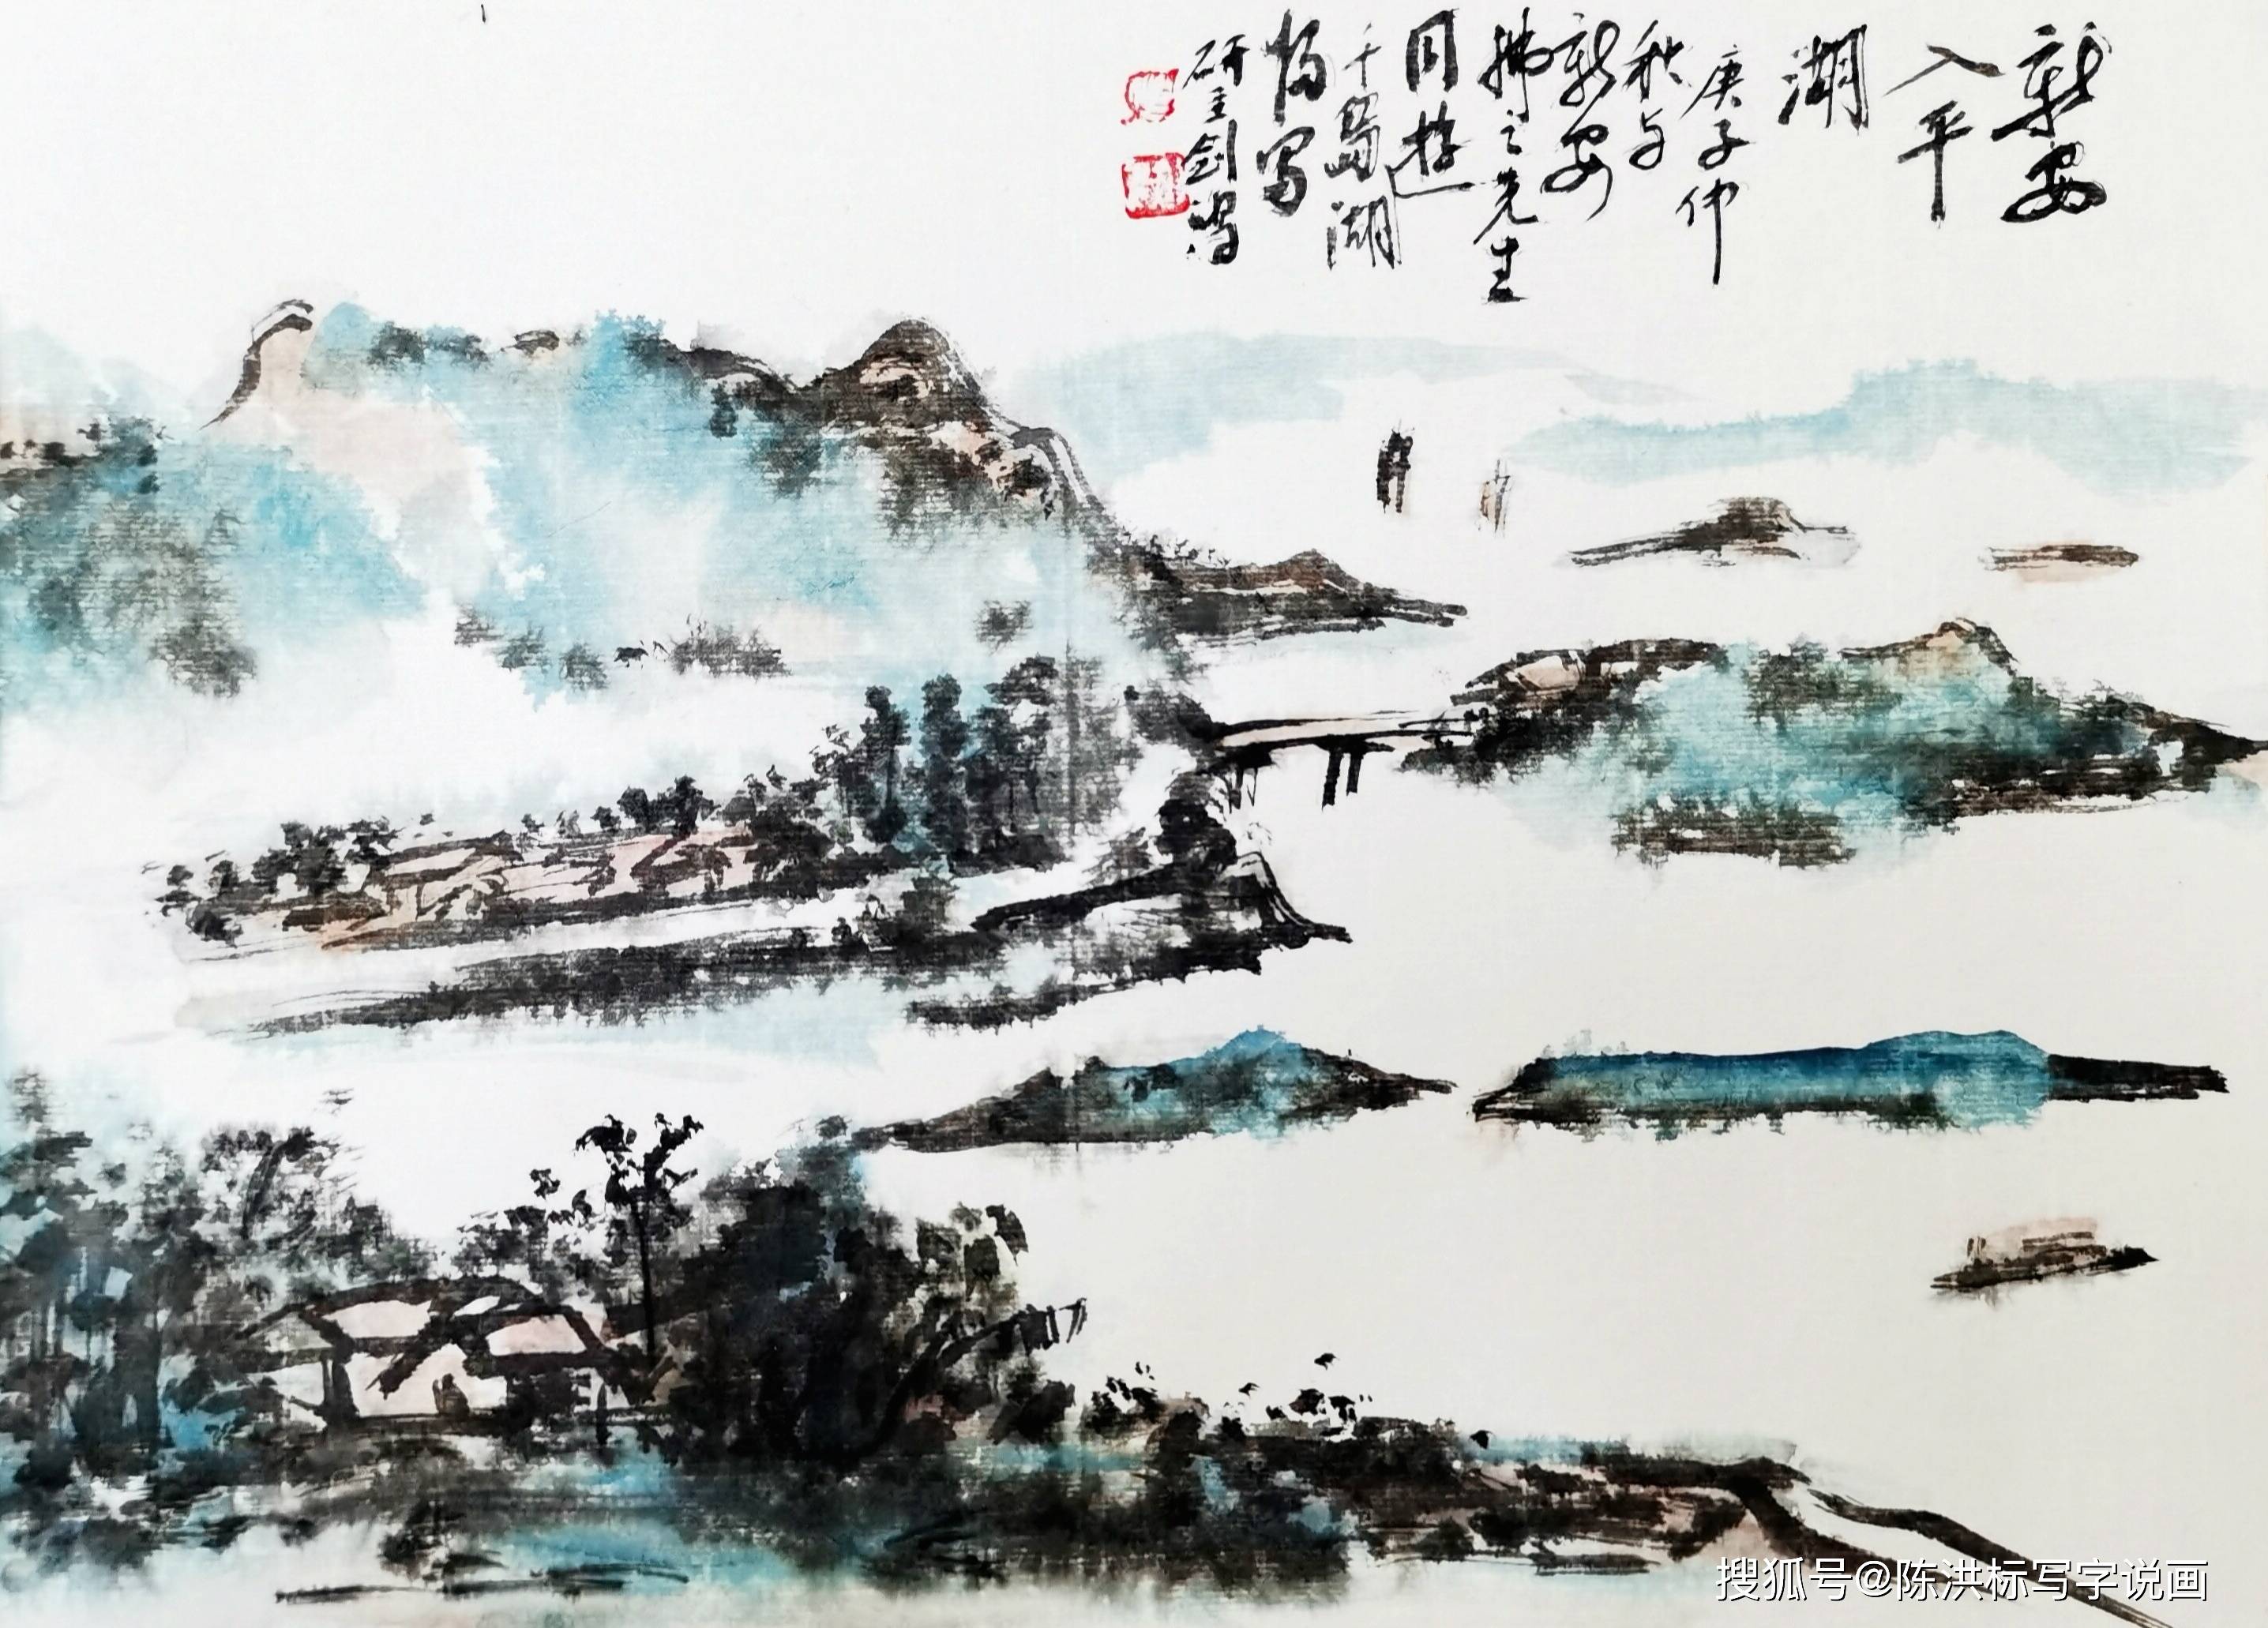 新安
入平
湖
庚子仲
秋与
新安
拂之先生
同遊
千島湖
写
研主剑
搜狐号@陈洪标写字说画